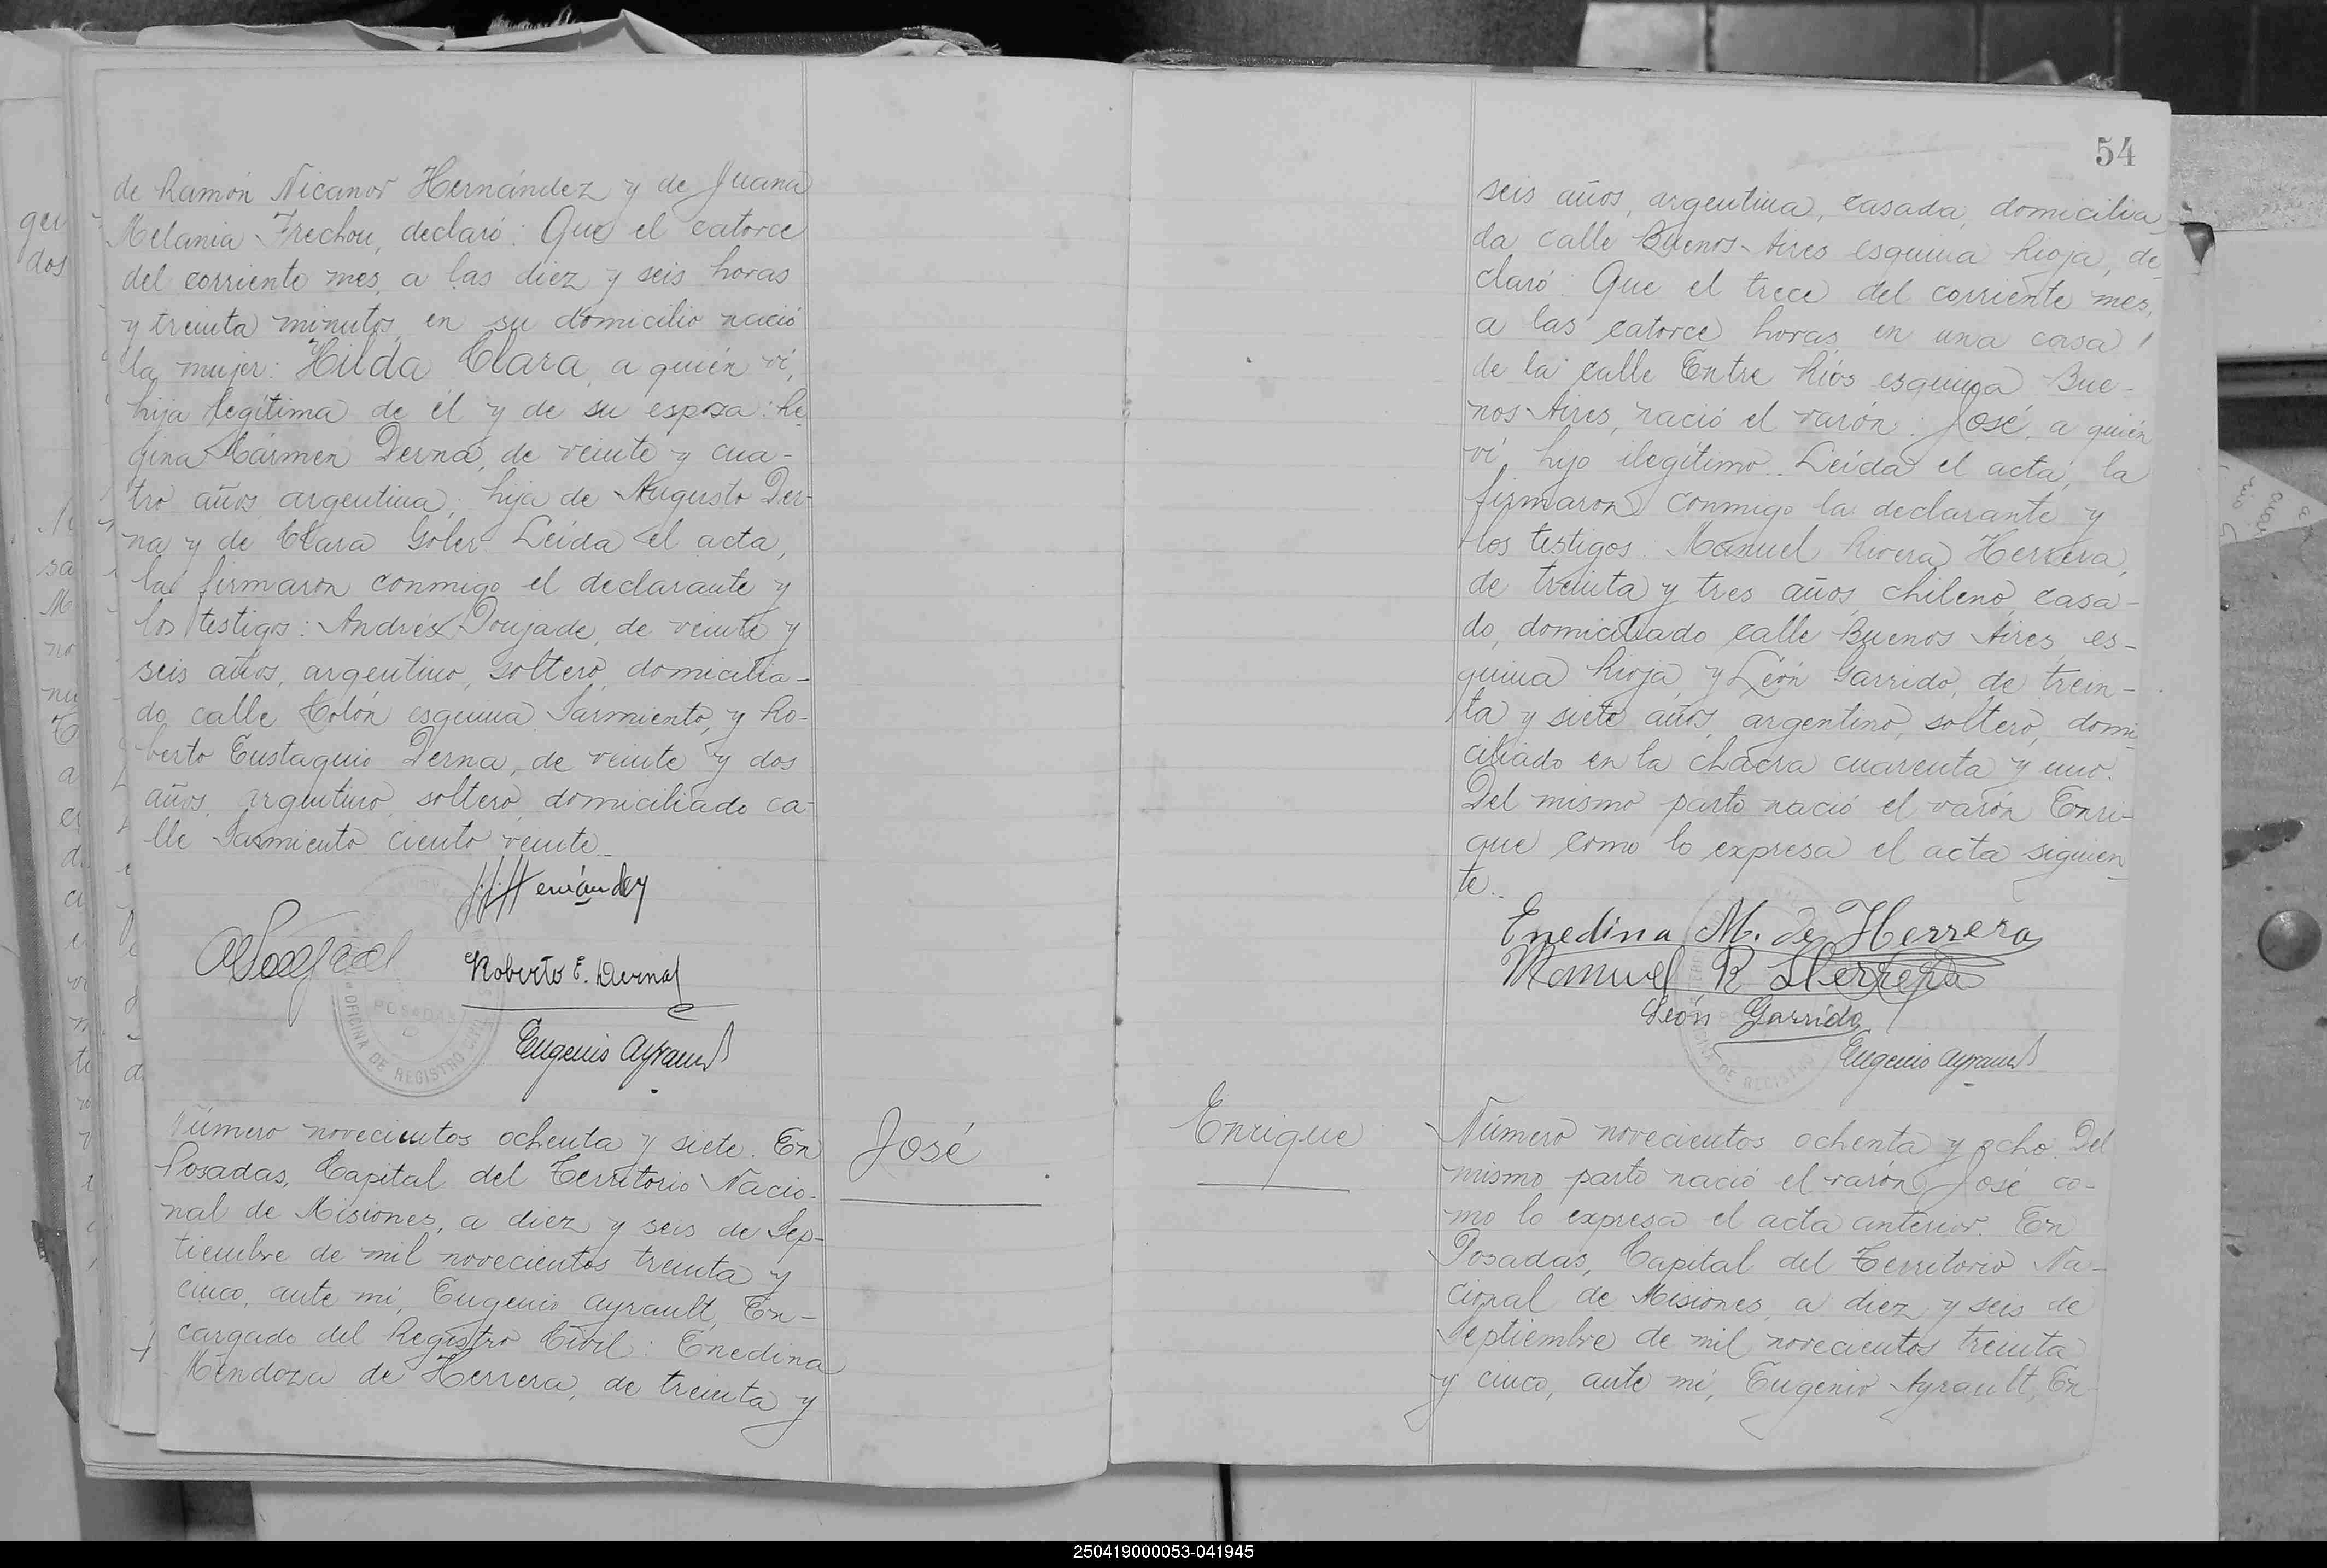 de Ramón Nicanor Hernández y de Juana
Melania Frechou, declaró: Que el catorce
del corriente mes, a las diez y seis horas
y treinta minutos, en su domicilio nació
la mujer: Hilda Clara, a quién ví,
hija legítima de él y de su esposa: Re-
gina Cármen Derna, de veinte y cua-
tro años, argentina, hija de Augusto Der-
na y de Clara Goler. Leída el acta,
la firmaron conmigo el declarante y
los testigos: Andrés Doujade, de veinte y
seis años, argentino, soltero, domicilia-
do calle Colón esquina Sarmiento, y Ro-
berto Eustaquio Derna, de veinte y dos
años, argentino, soltero, domiciliado ca-
lle Sarmiento ciento veinte.
Hernández
Roberto E. Derna
POSADAS
OFICINA DE REGISTRO CIVIL
Eugenio Ayrault
José
Número novecientos ochenta y siete. En
Posadas, Capital del Territorio Nacio-
nal de Misiones, a diez y seis de Sep-
tiembre de mil novecientos treinta y
cinco, ante mí, Eugenio Ayrault, En-
cargado del Registro Civil: Enedina
Mendoza de Herrera, de treinta y
54
seis años, argentina, casada, domicilia-
da calle Buenos Aires esquina Rioja, de-
claró: Que el trece del corriente mes,
a las catorce horas, en una casa
de la calle Entre Ríos esquina Bue-
nos Aires, nació el varón: José, a quién
ví, hijo ilegítimo. Leída el acta, la
firmaron conmigo la declarante y
los testigos: Manuel Rivera Herrera,
de treinta y tres años, chileno, casa-
do, domiciliado calle Buenos Aires es-
quina Rioja, y León Garrido, de trein-
ta y siete años, argentino, soltero, domi-
ciliado en la chacra cuarenta y uno.
Del mismo parto nació el varón Enri-
que como lo expresa el acta siguien-
te.
Enedina M. de Herrera
Manuel R Herrera
León Garrido
Eugenio Ayrault
Enrique
Número novecientos ochenta y ocho. Del
mismo parto nació el varón José co-
mo lo expresa el acta anterior. En
Posadas, Capital del Territorio Na-
cional de Misiones, a diez y seis de
Septiembre de mil novecientos treinta
y cinco, ante mí, Eugenio Ayrault, En-
250419000053-041945